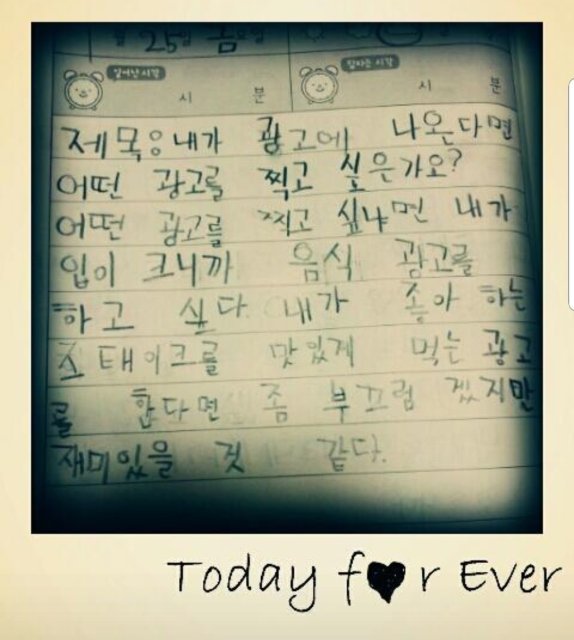 25일 금요일
일어난시각 시 분 잠자는시각 시 분
제목: 내가 광고에 나온다면
어떤 광고를 찍고 싶은가요?
어떤 광고를 찍고 싶냐면 내가
입이 크니까 음식 광고를
하고 싶다. 내가 좋아 하는
스테이크를 맛있게 먹는 광고
를 한다면 좀 부끄럽 겠지만
재미있을 것 같다.
Today f♥r Ever